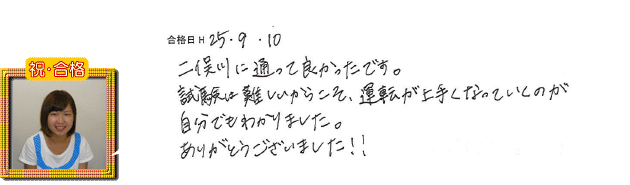 合格日 H 25・9・10
祝・合格
二俣川に通って良かったです。
試験は難しいからこそ、運転が上手くなっていくのが
自分でもわかりました。
ありがとうございました!!